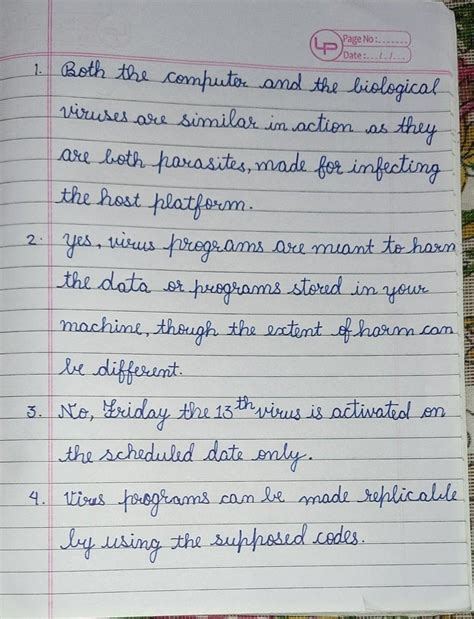 LP
Page No:.......
Date:.../.../...
1. Both the computer and the biological
viruses are similar in action as they
are both parasites, made for infecting
the host platform.
2. Yes, virus programs are meant to harm
the data or programs stored in your
machine, though the extent of harm can
be different.
3. No, Friday the 13th virus is activated on
the scheduled date only.
4. Virus programs can be made replicable
by using the supposed codes.